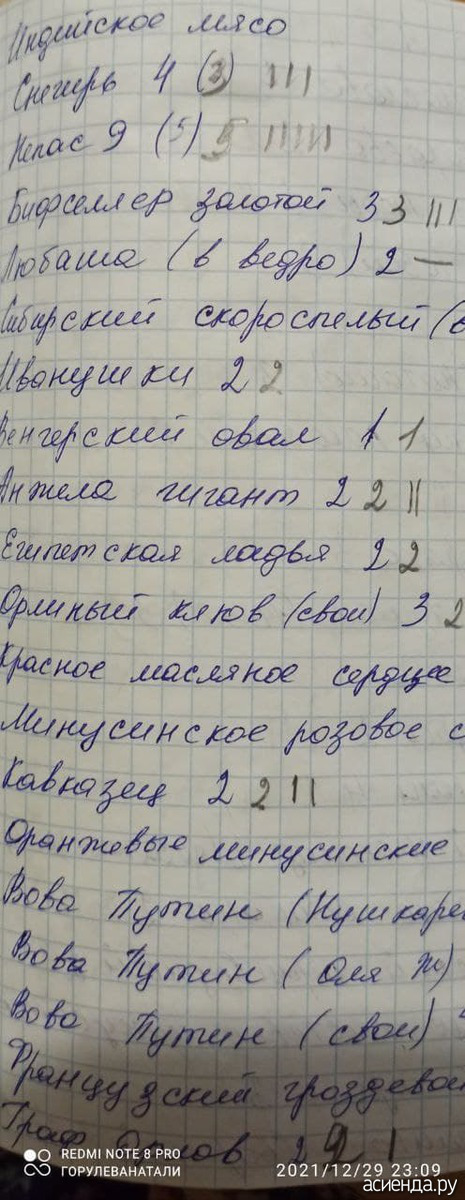 Индийское мясо
Снегирь 4 (3) III
Непас 9 (5) 5 IIIII
Бифселлер золотой 3 3 III
Любаша (в ведро) 2 —
Сибирский скороспелый (в
Иванушки 2 2
Венгерский овал 1 1
Анжела гигант 2 2 II
Египетская ладья 2 2
Орлиный клюв (свои) 3 2
Красное масляное сердце
Минусинское розовое с
Кавказец 2 2 II
Оранжевые минусинские
Вова Путин (Нушкарев
Вова Путин (Оля Ж)
Вова Путин (свои)
Французский гроздевой
Граф Орлов 2 2 I
REDMI NOTE 8 PRO
ГОРУЛЕВАНАТАЛИ
2021/12/29 23:09
асиенда.ру